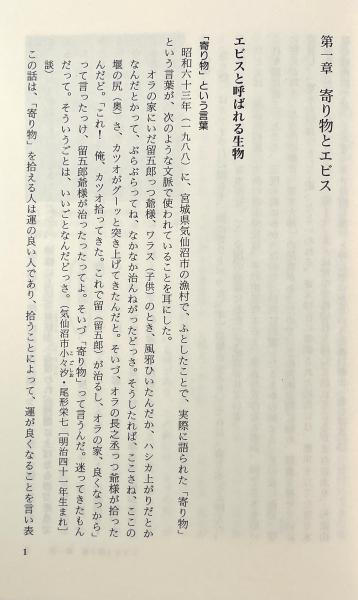 第一章　寄り物とエビス
エビスと呼ばれる生物
「寄り物」という言葉
昭和六十三年（一九八八）に、宮城県気仙沼市の漁村で、ふとしたことで、実際に語られた「寄り物」
という言葉が、次のような文脈で使われていることを耳にした。
オラの家にいだ留五郎っつ爺様、ワラス（子供）のとき、風邪ひいたんだか、ハシカ上がりだとか
なんだとかって、ぶらぶらってね、なかなか治んねがったどっさ。そうしたれば、ここさね、ここの
堰の尻（奥）さ、カツオがグーッと突き上げてきたんだと。そいづ、オラの長之丞っつ爺様が拾った
んだど。「これ！　俺、カツオ拾ってきた。これで留（留五郎）が治るし、オラの家、良くなっから」
って言うたっけ、留五郎爺様が治ったったってよ。そいづ「寄り物」って言うんだ。迷ってきたもん
だって。そういうごとは、いいごとなんだどっさ。（気仙沼市小々汐・尾形栄七［明治四十一年生まれ］
談）
この話は、「寄り物」を拾える人は運の良い人であり、拾うことによって、運が良くなることを言い表
1